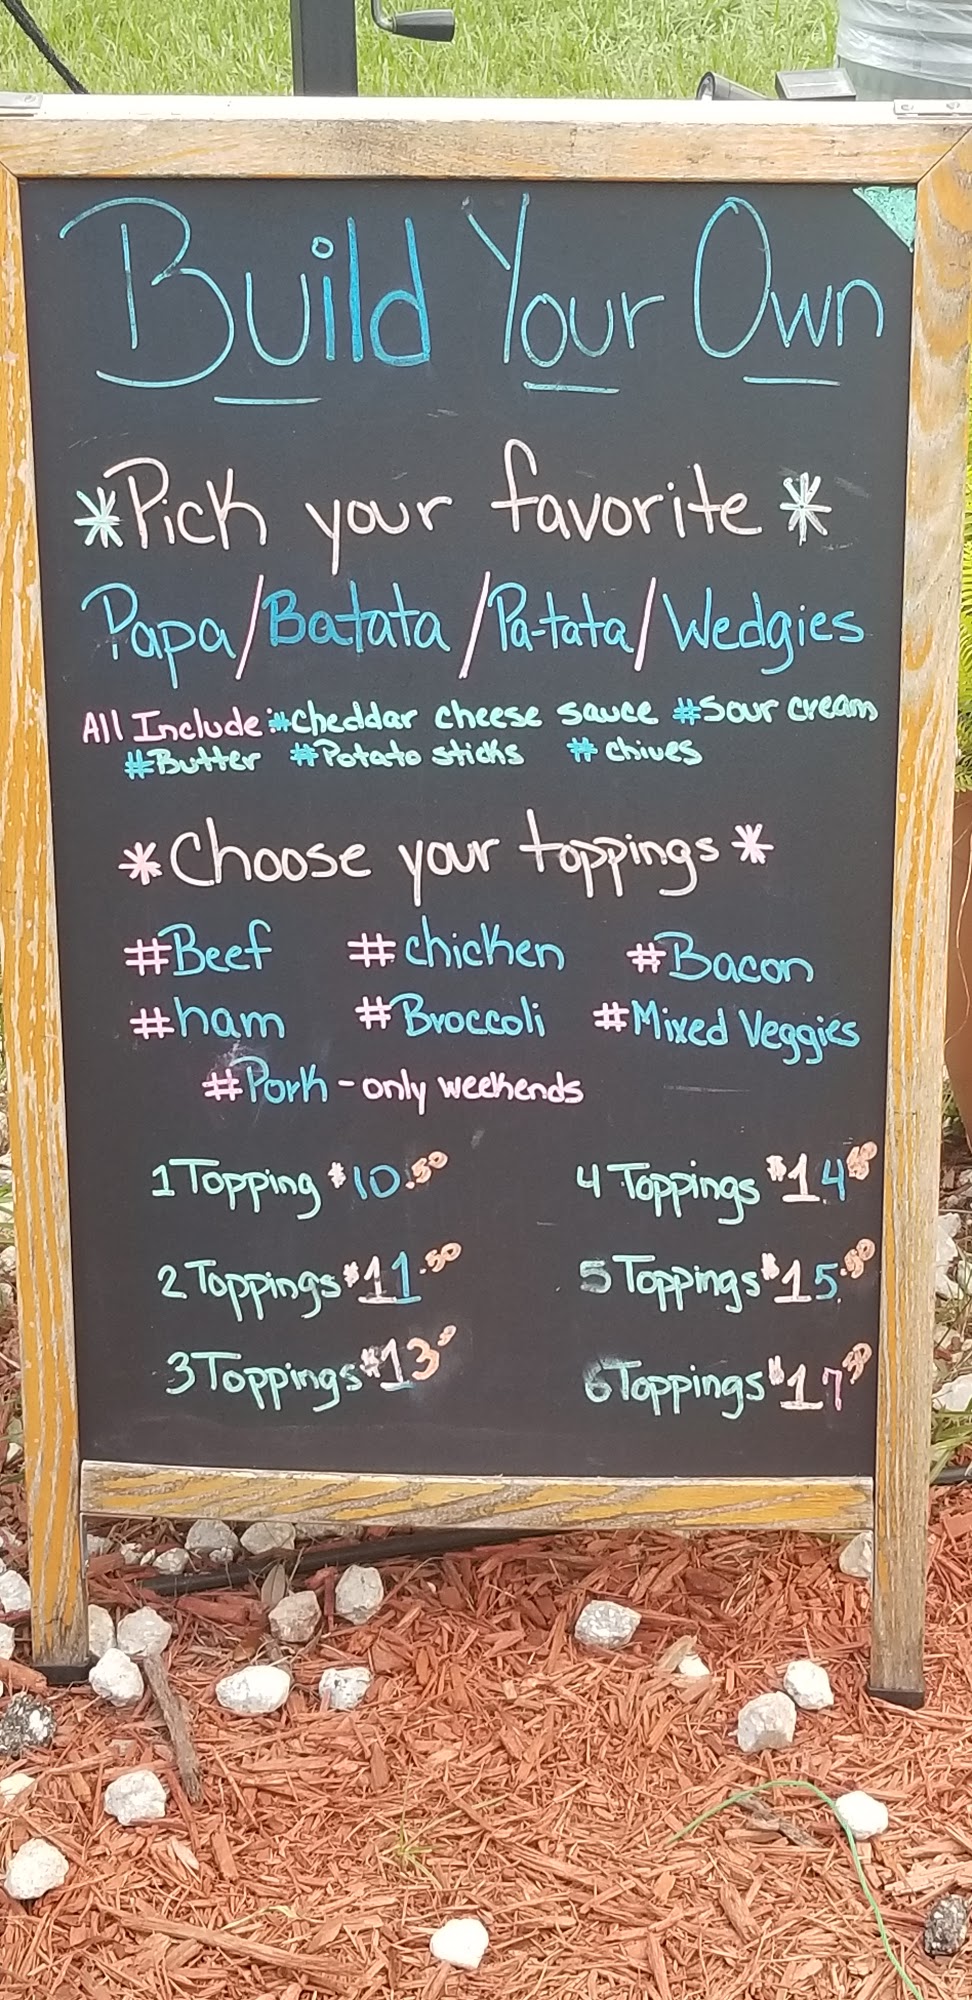 Build Your Own
*Pick your favorite*
Papa/Batata/Pa-tata/Wedgies
All Include:#Cheddar cheese sauce #Sour cream
#Butter #Potato sticks # chives
*Choose your toppings*
#Beef #chicken #Bacon
#ham #Broccoli #Mixed Veggies
#Pork - only weekends
1 Topping $10.50 4 Toppings $14.50
2 Toppings $11.50 5 Toppings $15.50
3 Toppings $13.50 6 Toppings $17.50